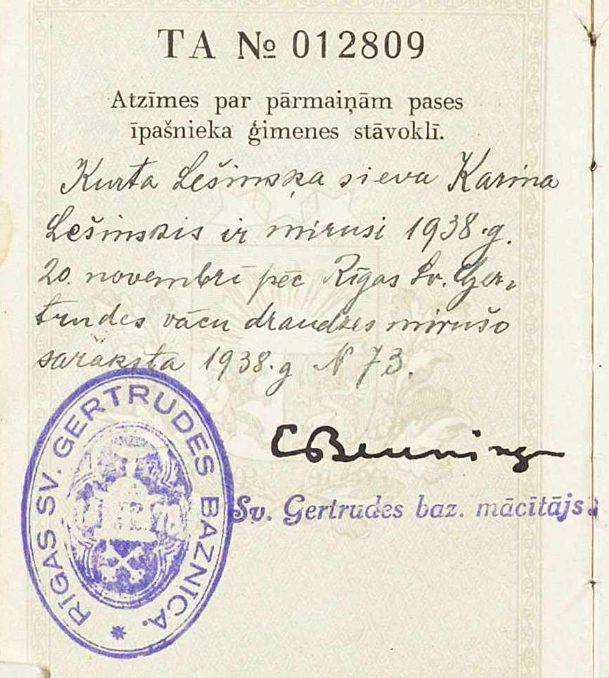 TA № 012809
Atzīmes par pārmaiņām pases
īpašnieka ģimenes stāvoklī.
Kurta Lešinska sieva Karina
Lešinskis ir mirusi 1938.g.
20. novembrī pēc Rīgas Sv. Ger-
trudes vācu draudzes mirušo
saraksta 1938.g N 73.
Sv. Gertrudes baz. mācītājs
RIGAS SV. GERTRUDES BAZNICA.